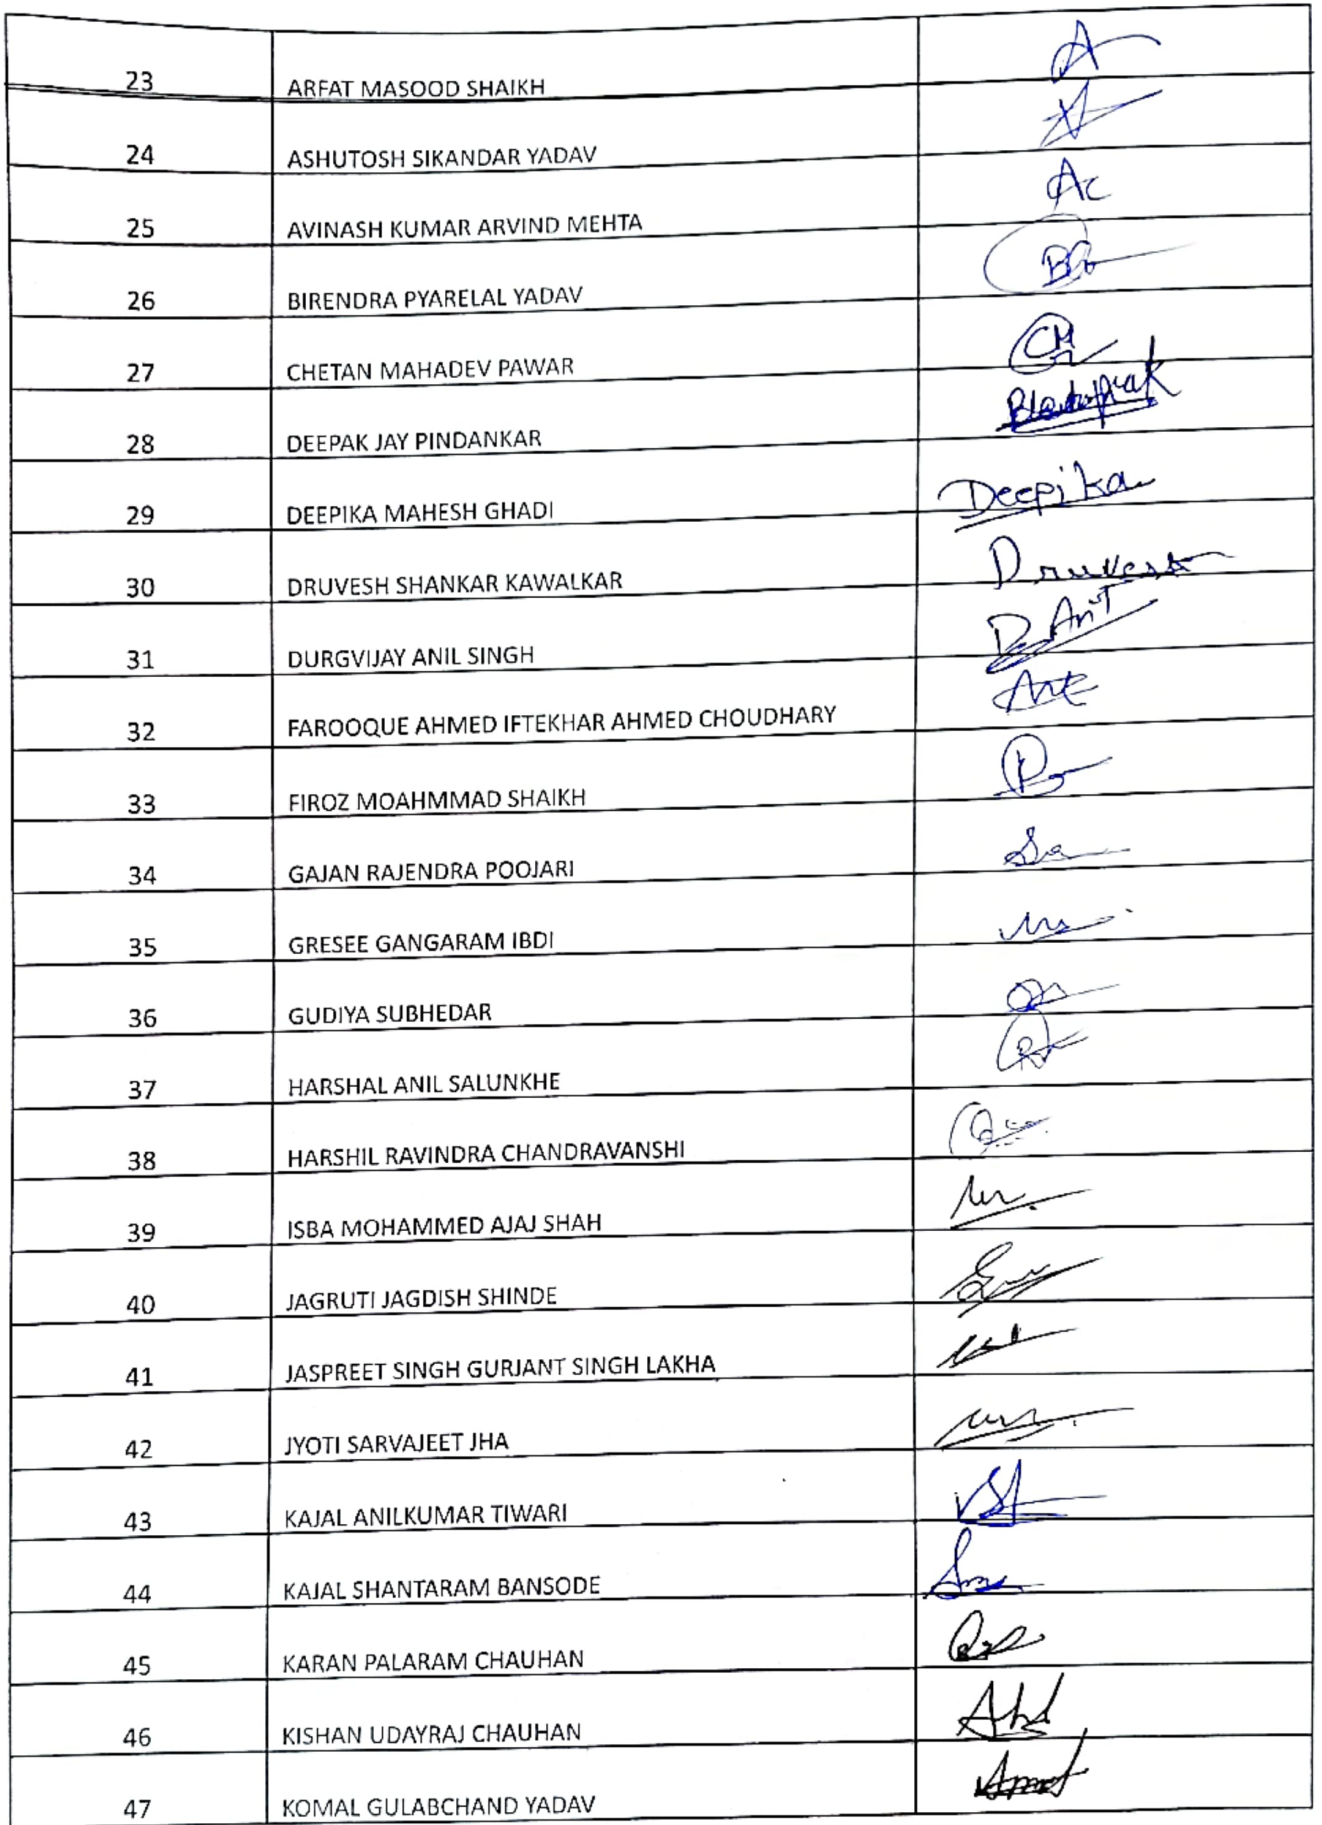 23 ARFAT MASOOD SHAIKH
24 ASHUTOSH SIKANDAR YADAV
25 AVINASH KUMAR ARVIND MEHTA
26 BIRENDRA PYARELAL YADAV
27 CHETAN MAHADEV PAWAR CM
28 DEEPAK JAY PINDANKAR
29 DEEPIKA MAHESH GHADI Deepika
30 DRUVESH SHANKAR KAWALKAR Druvesh
31 DURGVIJAY ANIL SINGH
32 FAROOQUE AHMED IFTEKHAR AHMED CHOUDHARY
33 FIROZ MOAHMMAD SHAIKH
34 GAJAN RAJENDRA POOJARI
35 GRESEE GANGARAM IBDI
36 GUDIYA SUBHEDAR
37 HARSHAL ANIL SALUNKHE
38 HARSHIL RAVINDRA CHANDRAVANSHI
39 ISBA MOHAMMED AJAJ SHAH
40 JAGRUTI JAGDISH SHINDE
41 JASPREET SINGH GURJANT SINGH LAKHA
42 JYOTI SARVAJEET JHA
43 KAJAL ANILKUMAR TIWARI
44 KAJAL SHANTARAM BANSODE
45 KARAN PALARAM CHAUHAN
46 KISHAN UDAYRAJ CHAUHAN
47 KOMAL GULABCHAND YADAV